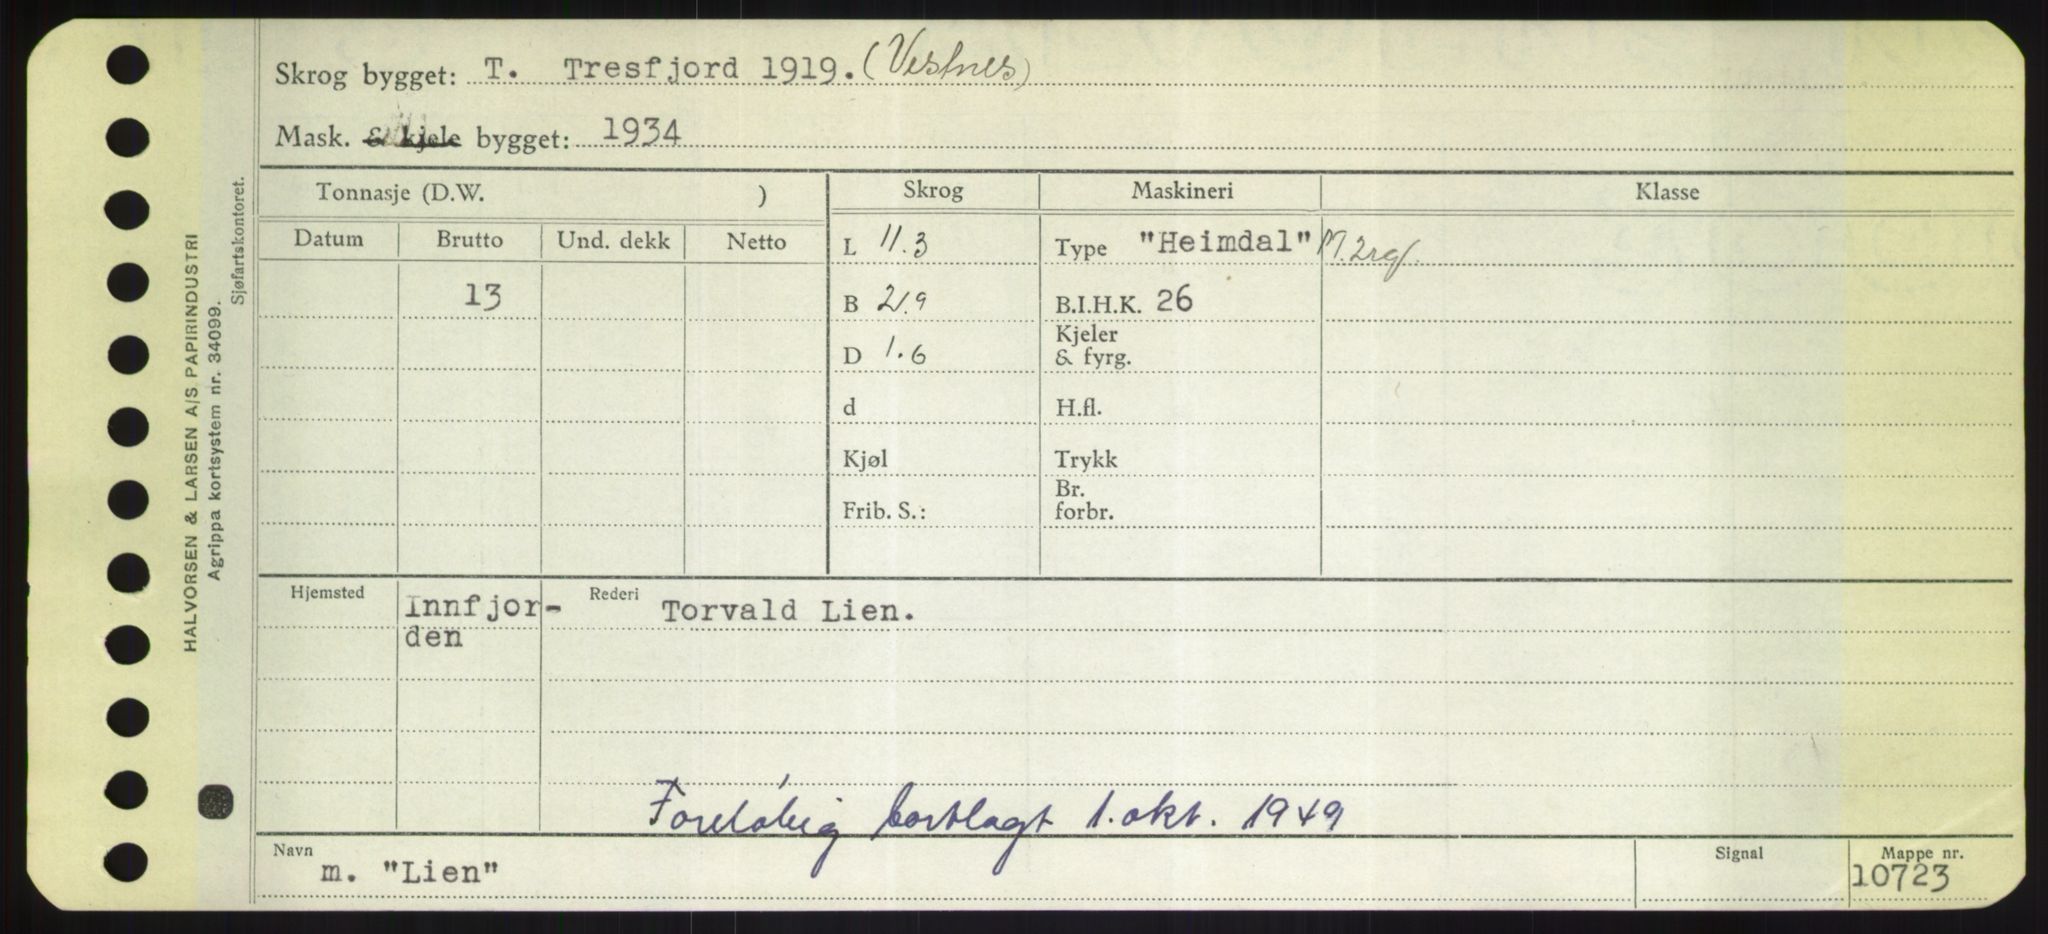 Skrog bygget: T. Tresfjord 1919. (Vestnes)
Mask. & kjele bygget: 1934
Tonnasje (D.W. )
Skrog
Maskineri
Klasse
Datum Brutto Und. dekk Netto
L 11.3
Type "Heimdal"
13
B 2.9
B.I.H.K. 26
D 1.6
Kjeler
& fyrg.
d
H.fl.
Kjøl
Trykk
Frib. S.:
Br.
forbr.
Hjemsted Innfjor-
den
Rederi Torvald Lien.
Foreløbig bortlagt 1. okt. 1949
Navn
m. "Lien"
Signal
Mappe nr.
10723
HALVORSEN & LARSEN A/S PAPIRINDUSTRI
Agrippa kortsystem nr. 34099.
Sjøfartskontoret.